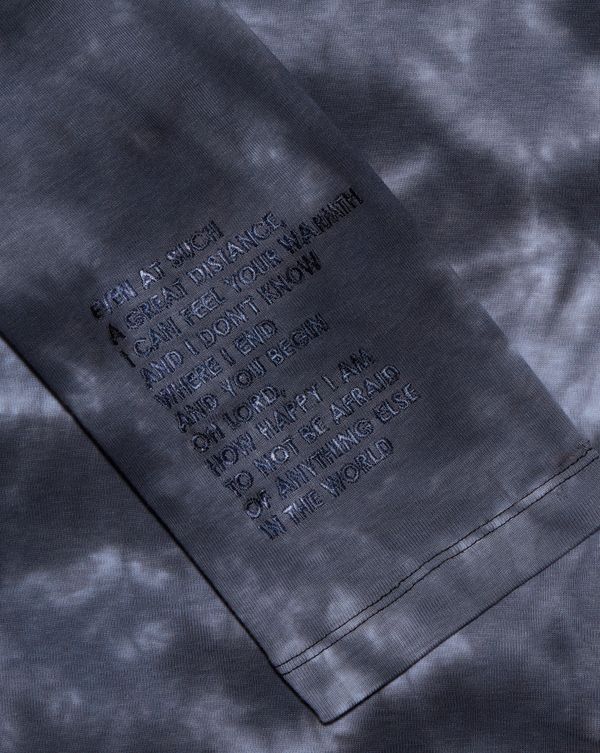 EVEN AT SUCH
A GREAT DISTANCE,
I CAN FEEL YOUR WARMTH
AND I DON'T KNOW
WHERE I END
AND YOU BEGIN
OH LORD,
HOW HAPPY I AM
TO NOT BE AFRAID
OF ANYTHING ELSE
IN THE WORLD